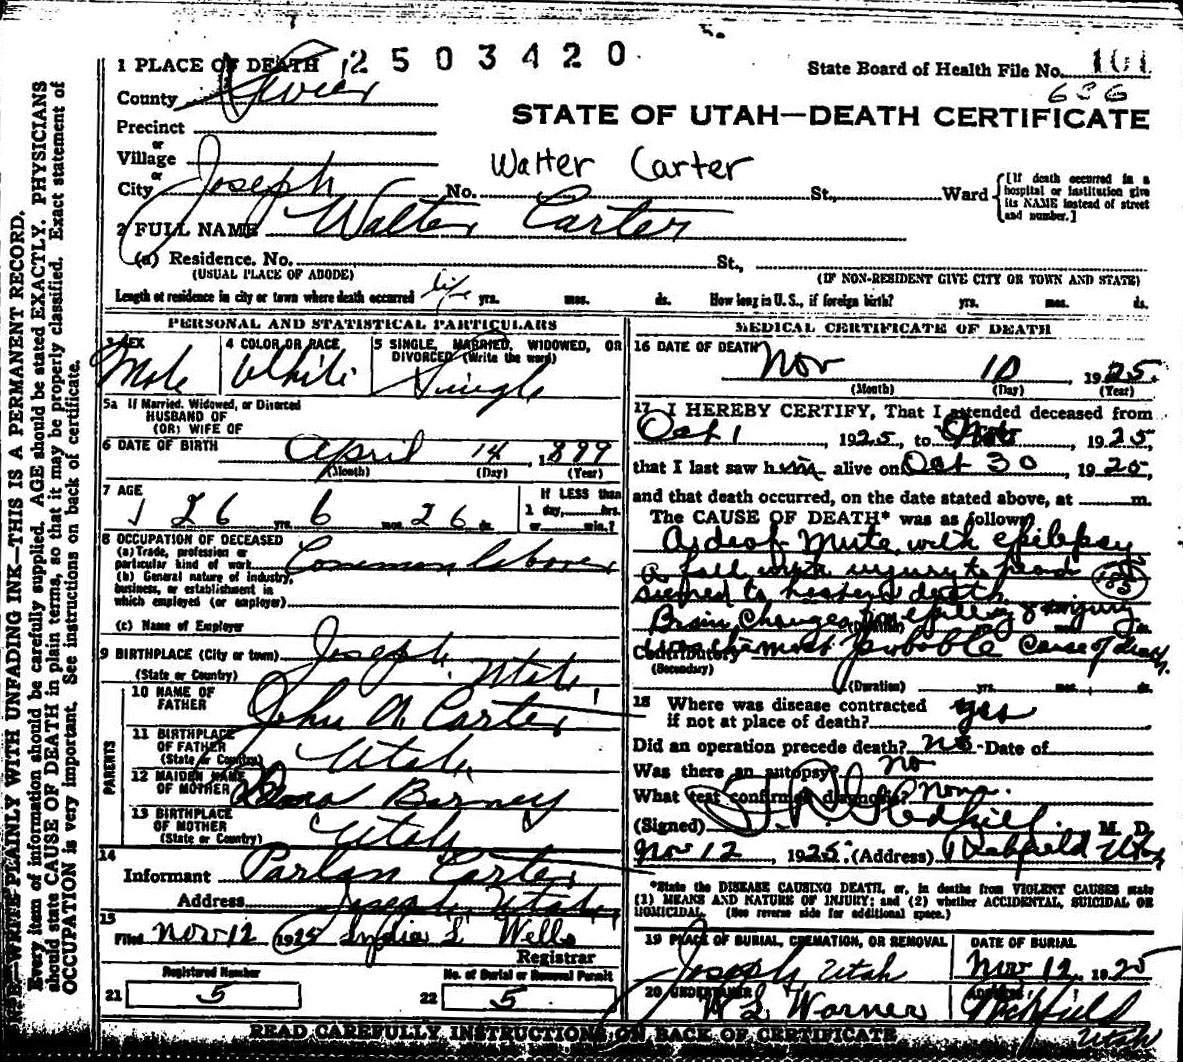 2503420
1 PLACE OF DEATH
State Board of Health File No. 101
636
County Sevier
STATE OF UTAH—DEATH CERTIFICATE
Precinct
or
Village
Walter Carter
or
City Joseph No. St., Ward
[If death occurred in a hospital or institution give its NAME instead of street and number.]
2 FULL NAME Walter Carter
(a) Residence. No. St.,
(USUAL PLACE OF ABODE) (IF NON-RESIDENT GIVE CITY OR TOWN AND STATE)
Length of residence in city or town where death occurred life yrs. mos. ds. How long in U. S., if foreign birth? yrs. mos. ds.
PERSONAL AND STATISTICAL PARTICULARS
3 SEX Male
4 COLOR OR RACE White
5 SINGLE, MARRIED, WIDOWED, OR DIVORCED (Write the word) Single
5a If Married, Widowed, or Divorced
HUSBAND OF
(OR) WIFE OF
6 DATE OF BIRTH April 14, 1899
(Month) (Day) (Year)
7 AGE 26 yrs. 6 mos. 26 ds.
If LESS than
1 day, hrs.
or min.?
8 OCCUPATION OF DECEASED
(a) Trade, profession or
particular kind of work Common labover
(b) General nature of industry,
business, or establishment in
which employed (or employer)
(c) Name of Employer
9 BIRTHPLACE (City or town) Joseph, Utah
(State or Country)
PARENTS
10 NAME OF
FATHER John A Carter
11 BIRTHPLACE
OF FATHER Utah
(State or Country)
12 MAIDEN NAME
OF MOTHER Barney
13 BIRTHPLACE
OF MOTHER Utah
(State or Country)
14
Informant Parlan Carter
Address Joseph Utah
15
Filed Nov 12 1925 Lydia L Wells
Registrar
Registered Number
21 5
No. of Burial or Removal Permit
22 5
MEDICAL CERTIFICATE OF DEATH
16 DATE OF DEATH Nov 10, 1925
(Month) (Day) (Year)
17 I HEREBY CERTIFY, That I attended deceased from
Oct 1, 1925, to Nov, 1925,
that I last saw him alive on Oct 30 1925,
and that death occurred, on the date stated above, at m.
The CAUSE OF DEATH* was as follows:
A deaf Mute, with epilepsy
A fall with injury to head 185
seemed to hasten death
Brain changes epilepsy & injury
(Duration) yrs. mos. ds.
Contributory the most probable cause of death
(Secondary)
(Duration) yrs. mos. ds.
18 Where was disease contracted
if not at place of death? yes
Did an operation precede death? no Date of
Was there an autopsy? no
What test confirmed diagnosis? none.
(Signed) M. D.
Nov 12, 1925. (Address) Richfield Utah
*State the DISEASE CAUSING DEATH, or, in deaths from VIOLENT CAUSES state
(1) MEANS AND NATURE OF INJURY; and (2) whether ACCIDENTAL, SUICIDAL OR
HOMICIDAL. (See reverse side for additional space.)
19 PLACE OF BURIAL, CREMATION, OR REMOVAL
Joseph, Utah
DATE OF BURIAL
Nov 12, 1925
20 UNDERTAKER
L Warner
ADDRESS
Richfield
Utah
READ CAREFULLY INSTRUCTIONS ON BACK OF CERTIFICATE
WRITE PLAINLY WITH UNFADING INK—THIS IS A PERMANENT RECORD.
Every item of information should be carefully supplied. AGE should be stated EXACTLY. PHYSICIANS
should state CAUSE OF DEATH in plain terms, so that it may be properly classified. Exact statement of
OCCUPATION is very important. See instructions on back of certificate.